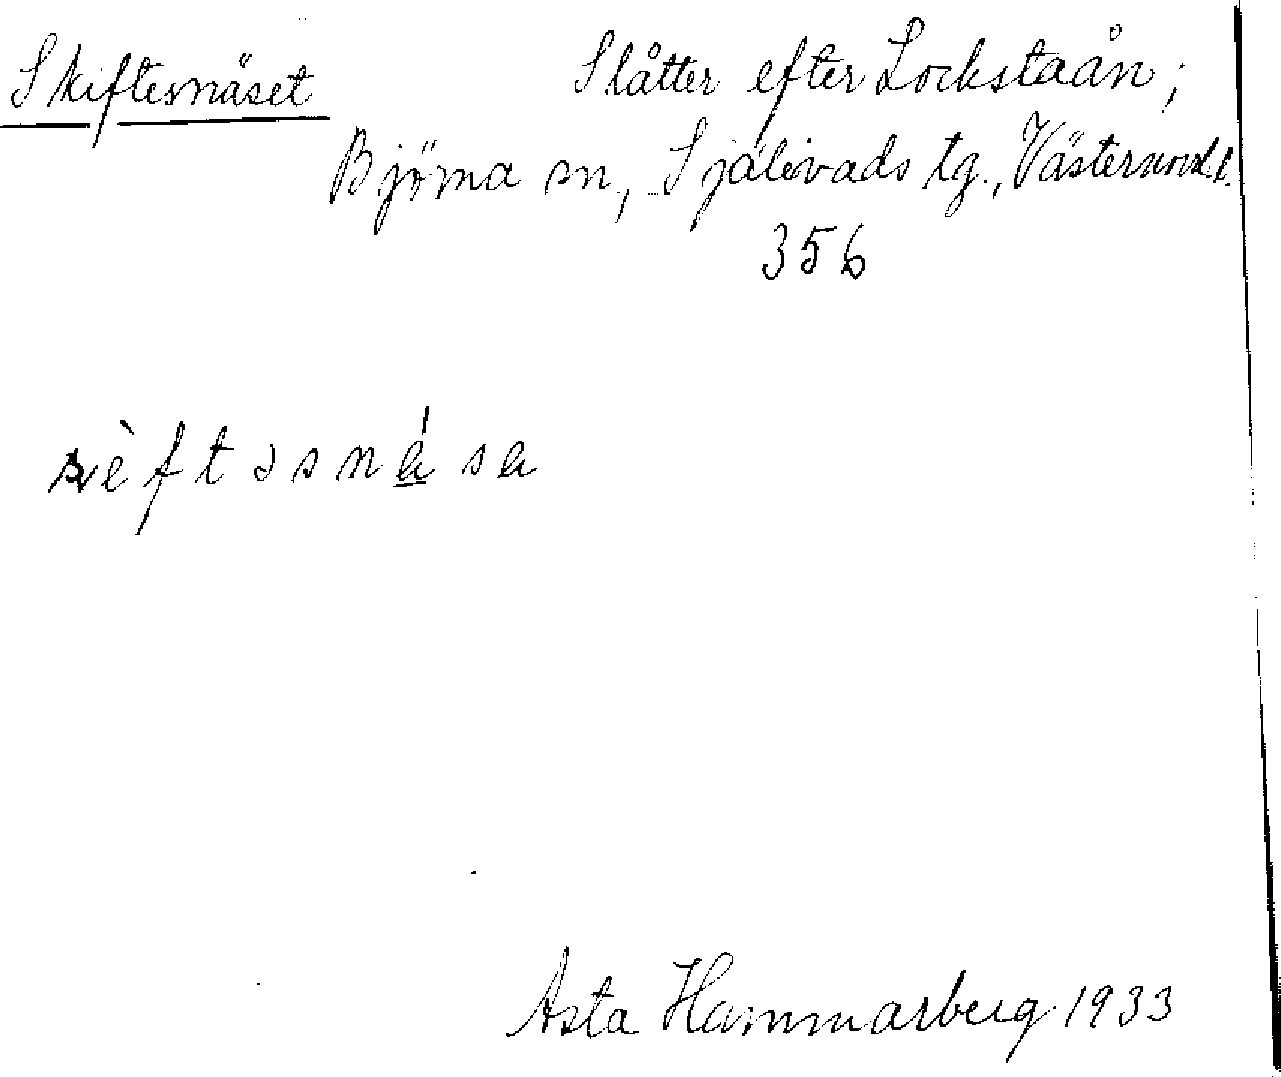 Skiftesnäset Slåtter efter Lockstaån;
Björna sn, Själevads tg., Västernorrl. l.
356
Asta Hammarberg 1933